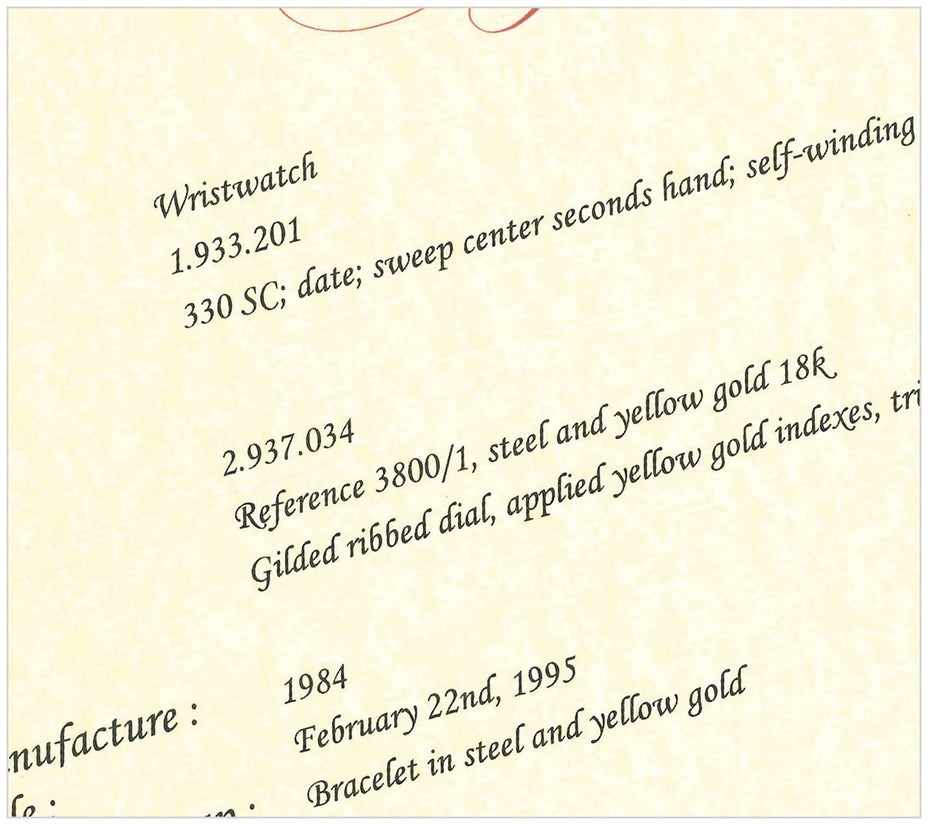 Wristwatch
1.933.201
330 SC; date; sweep center seconds hand; self-winding
2.937.034
Reference 3800/1, steel and yellow gold 18k
Gilded ribbed dial, applied yellow gold indexes, tri
nufacture : 1984
le : February 22nd, 1995
: Bracelet in steel and yellow gold